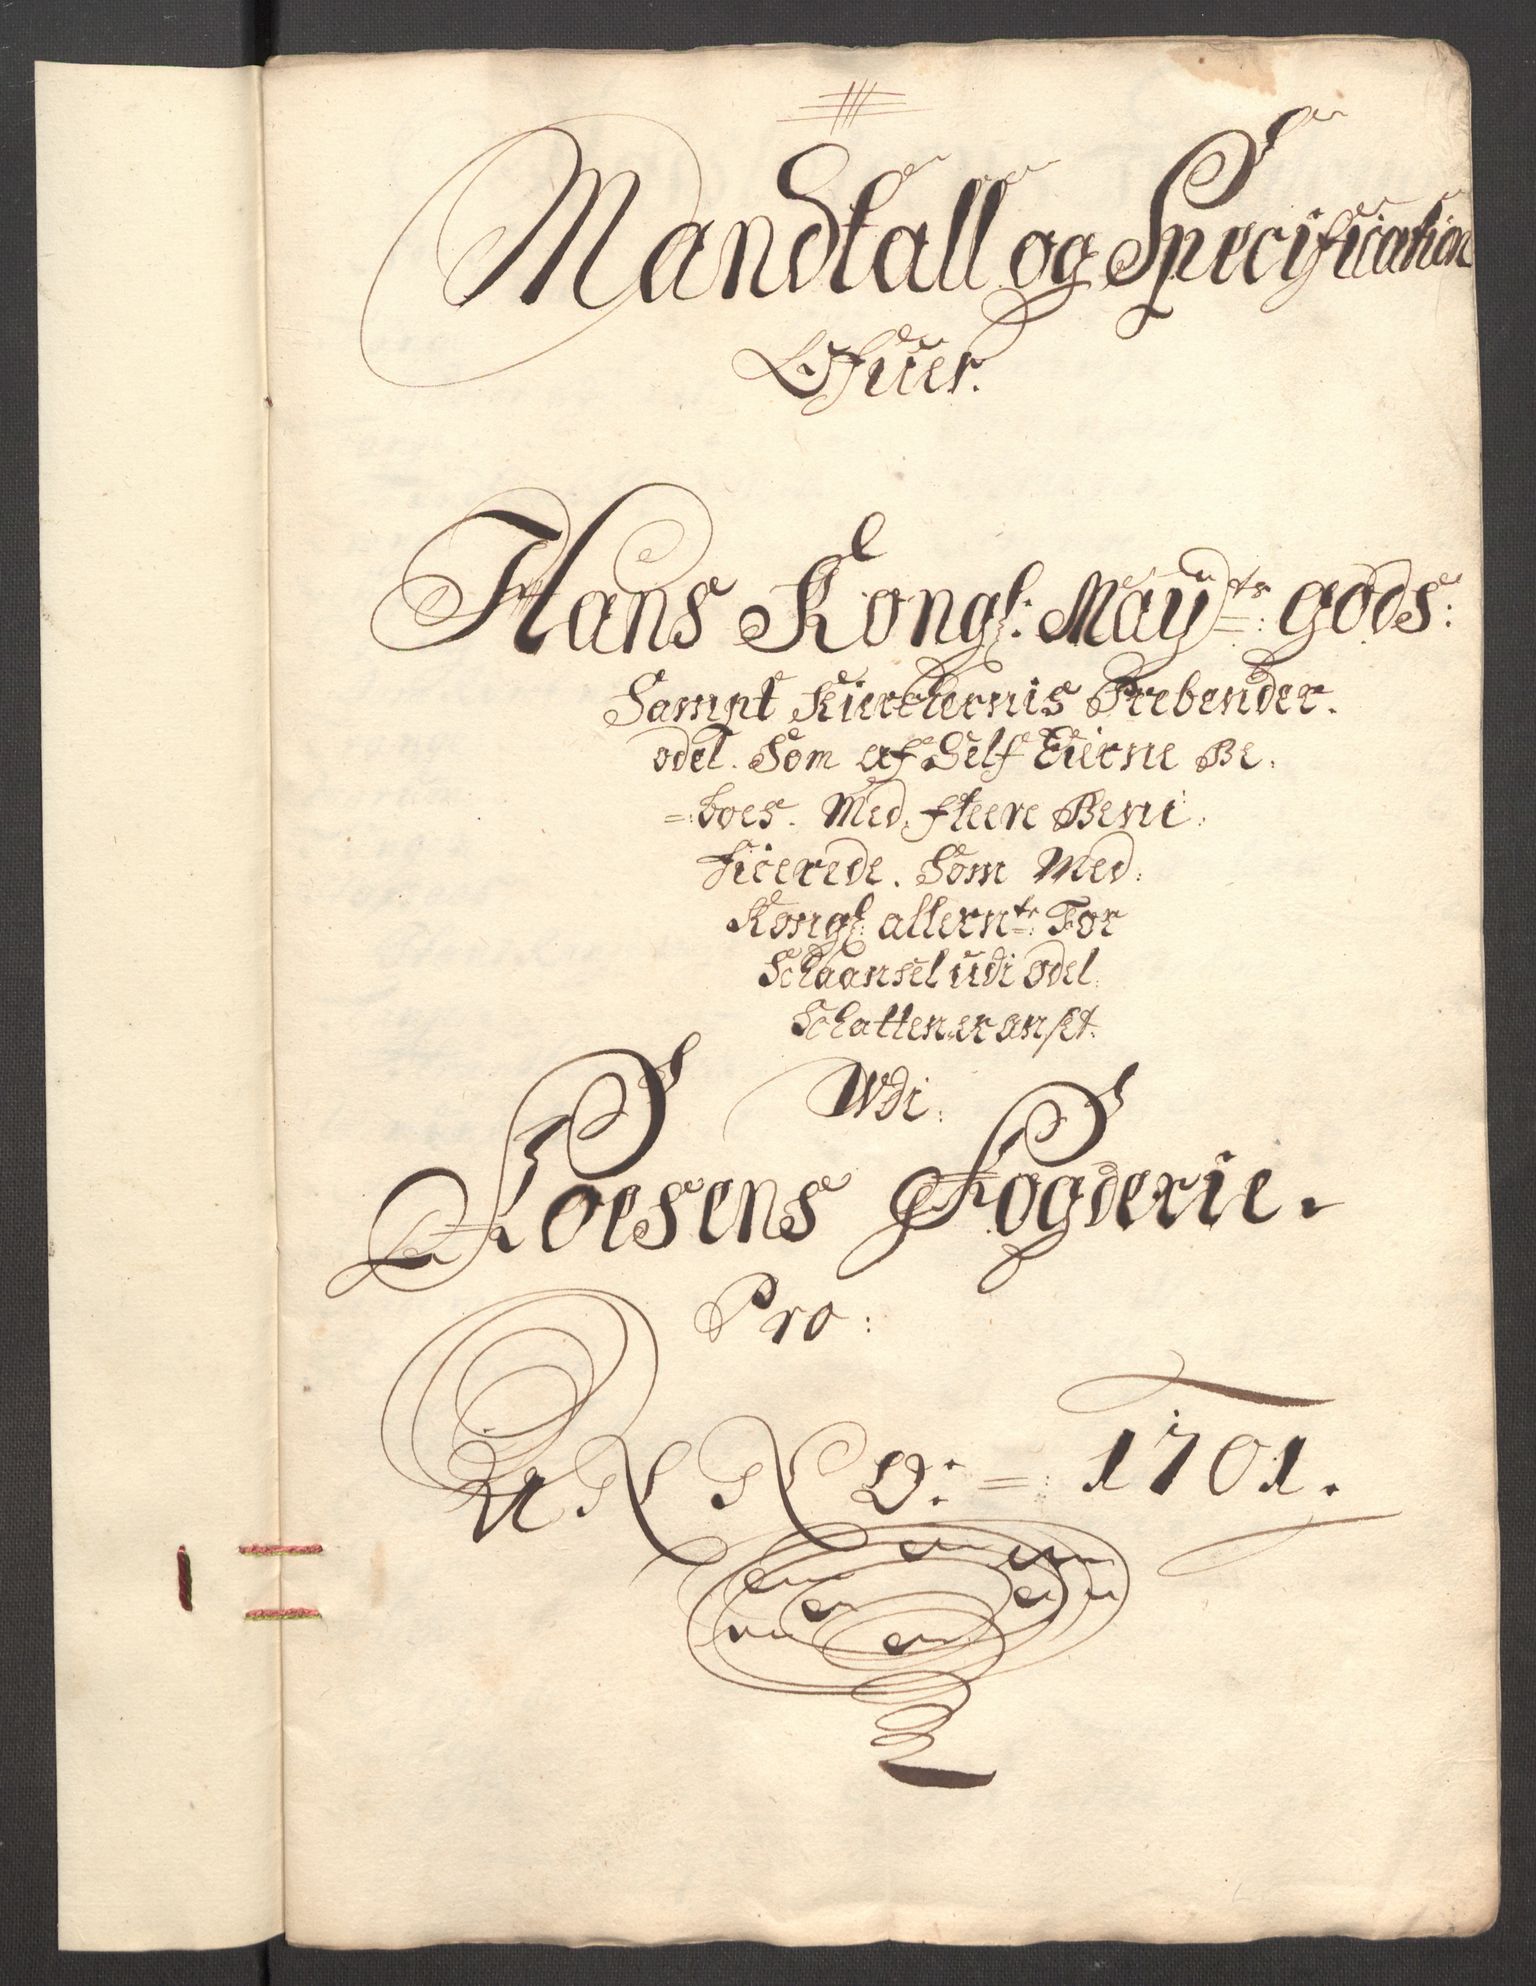 Mandtall og Specification
Ofuer.
Hans Kongl: May:ts gods:
Sampt Kierchernis Prebender.
odel. Som af Self Eierne Be,
=boes. Med fleere Beni
ficerede. Som Med
Kongl: allern:te For
Schaansel udi odel
Schatten er ansat.
Wdi.
Foesens Fogderie.
Pro:
ANNO: = 1701.